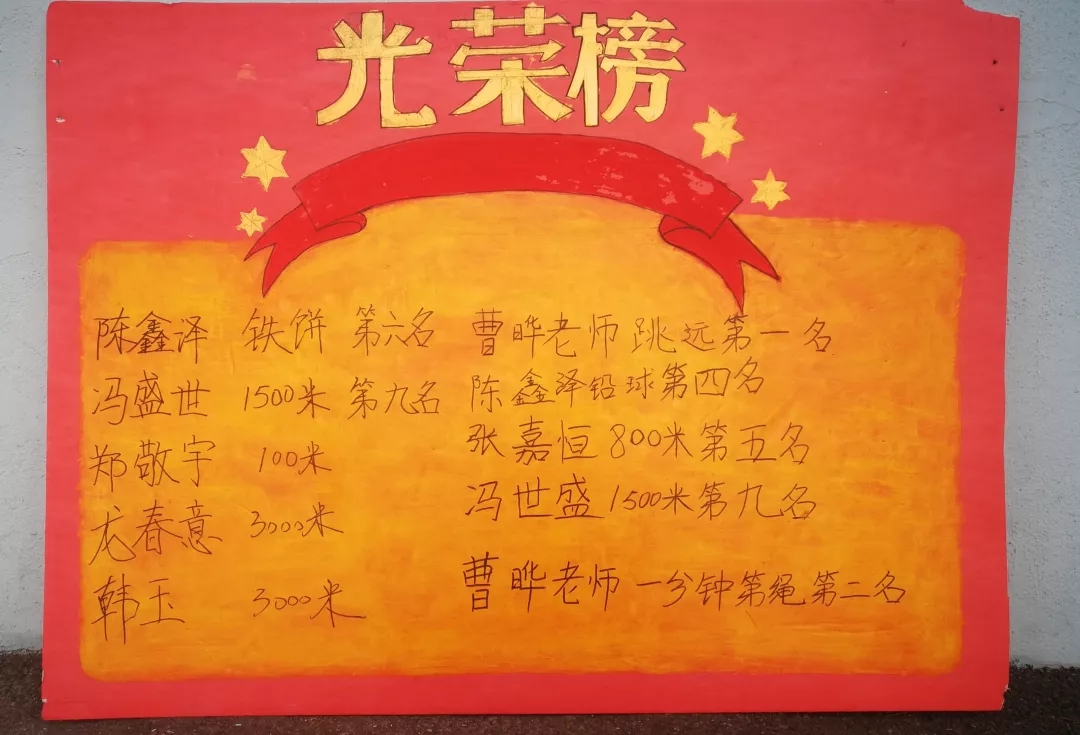 光荣榜
陈鑫泽 铁饼 第六名
冯盛世 1500米 第九名
郑敬宇 100米
龙春意 3000米
韩玉 3000米
曹晔老师 跳远第一名
陈鑫泽铅球第四名
张嘉恒 800米第五名
冯世盛 1500米第九名
曹晔老师 一分钟第绳第二名